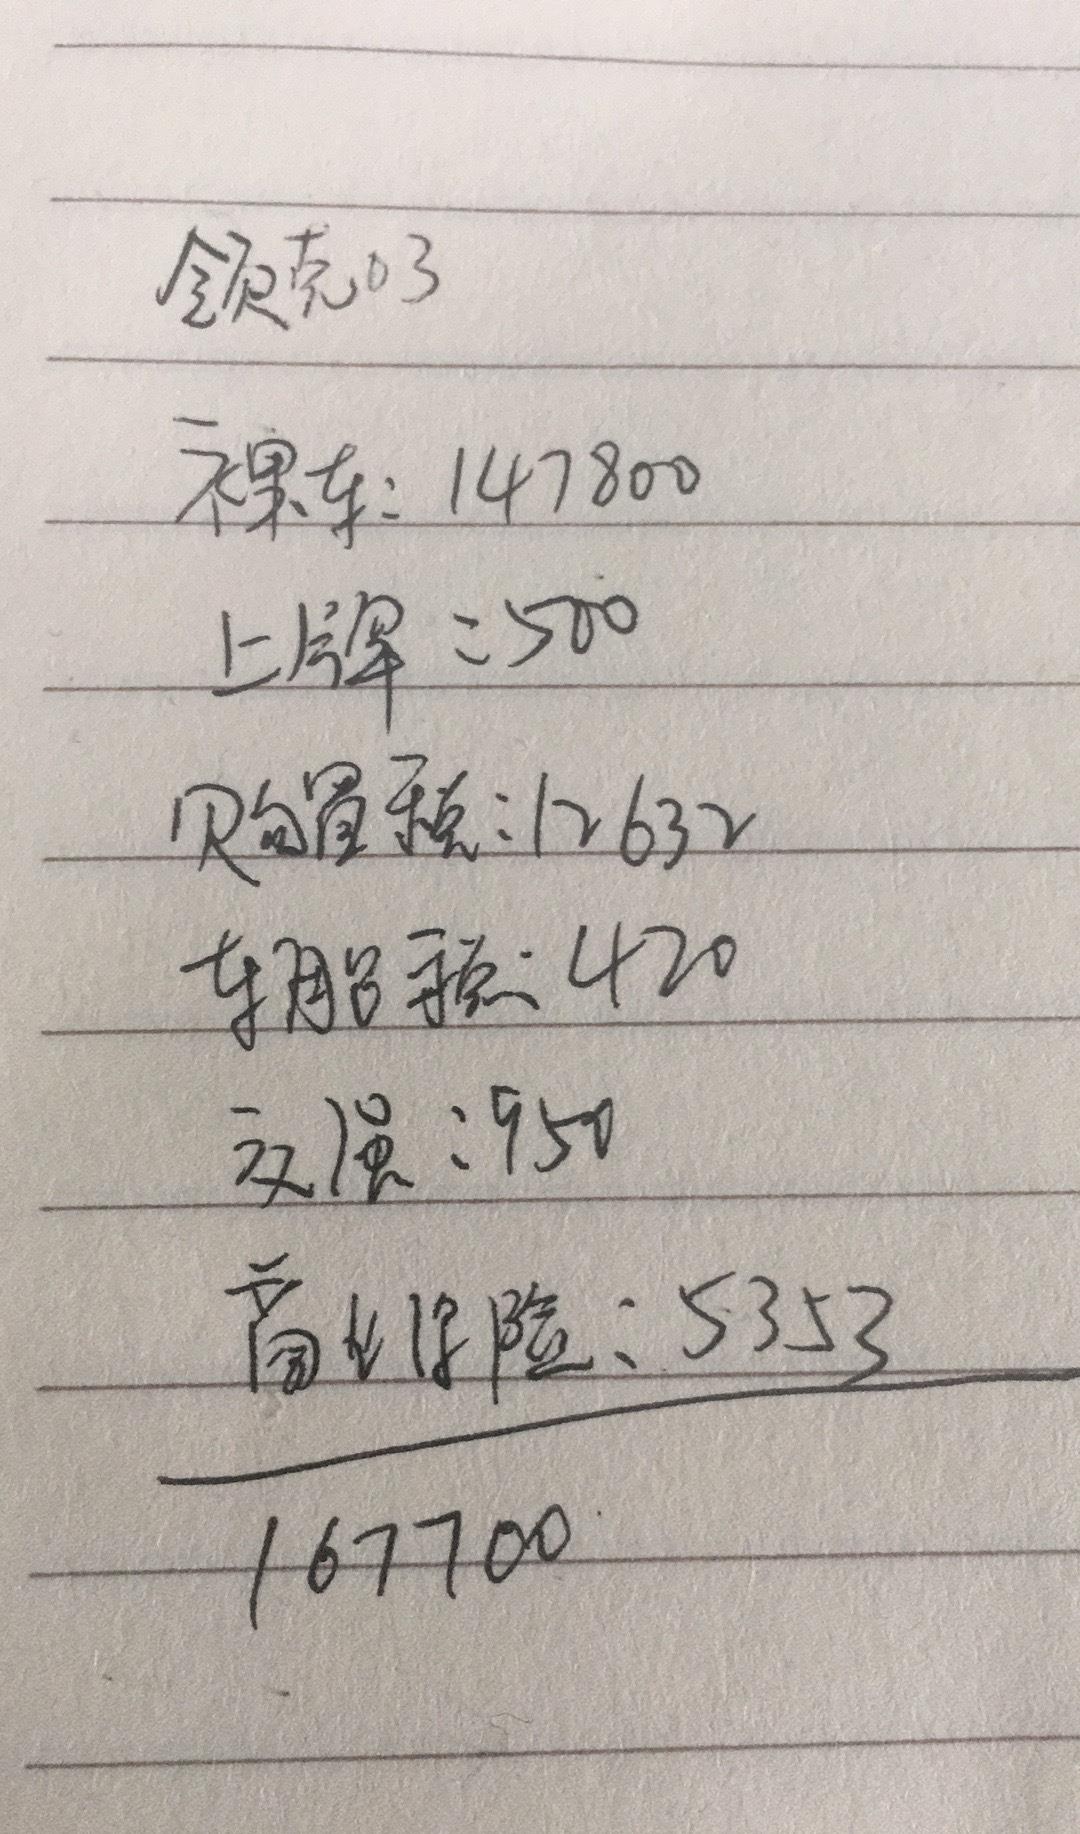 领克03
裸车：147800
上牌：500
购置税：12632
车船税：420
交强：950
商业保险：5353
167700